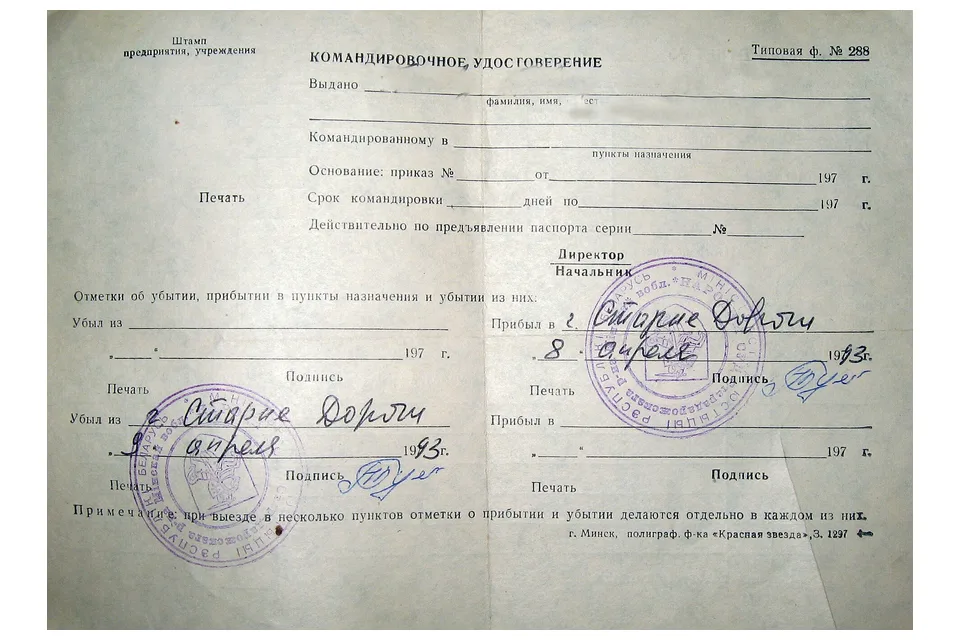 Штамп
предприятия, учреждения
Типовая ф. № 288
КОМАНДИРОВОЧНОЕ УДОСТОВЕРЕНИЕ
Выдано
фамилия, имя,
Командированному в
пункты назначения
Основание: приказ № от 197 г.
Печать
Срок командировки дней по 197 г.
Действительно по предъявлении паспорта серии №
Директор
Начальник
Отметки об убытии, прибытии в пункты назначения и убытии из них:
Убыл из
„ “ 197 г.
Подпись
Печать
Прибыл в г. Старые Дороги
„8 апреля 1993г.
Подпись
Печать
Убыл из г. Старые Дороги
„9 апреля 1993г.
Подпись
Печать
Прибыл в
„ “ 197 г.
Подпись
Печать
Примечание: при выезде в несколько пунктов отметки о прибытии и убытии делаются отдельно в каждом из них.
г. Минск, полиграф. ф-ка «Красная звезда», З. 1297